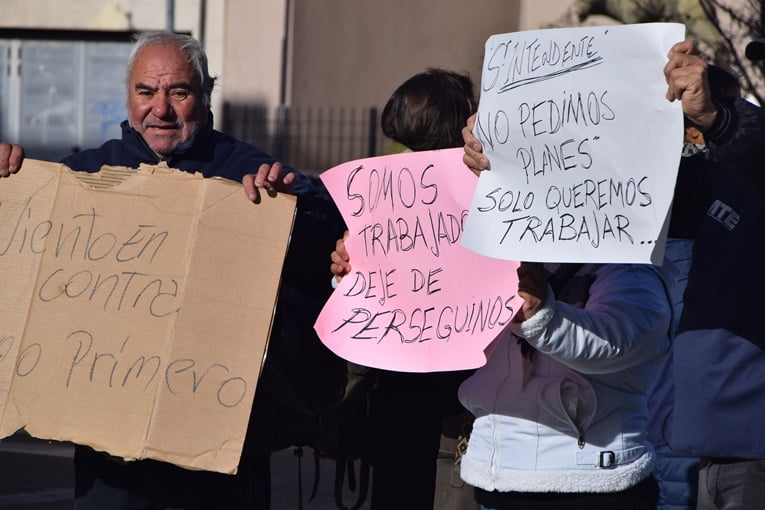 Viento En
contra
Primero
SOMOS
TRABAJADO
DEJE DE
PERSEGUINOS
"S'INTENDENTE"
"NO PEDIMOS
PLANES"
SOLO QUEREMOS
TRABAJAR...